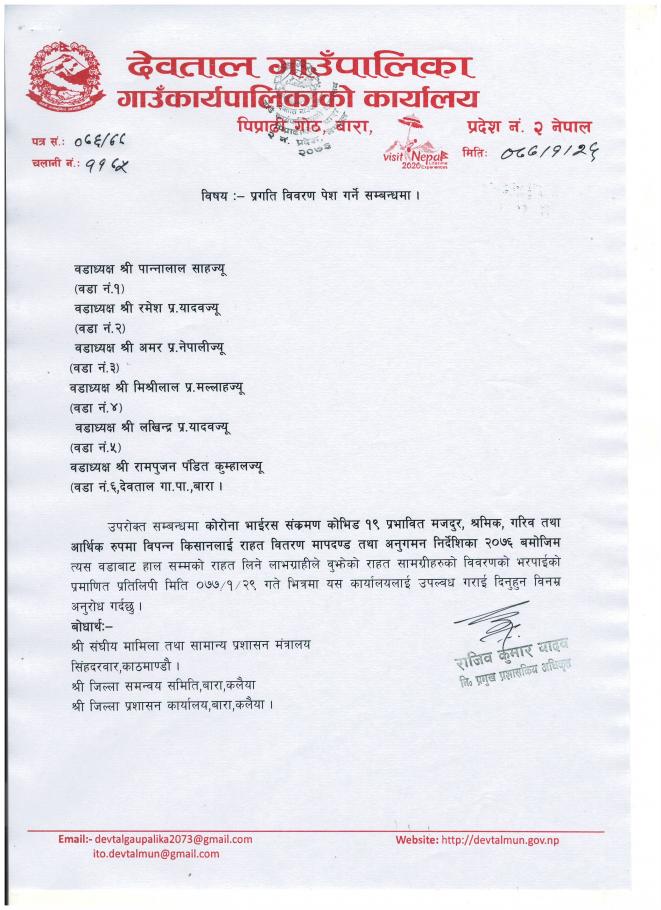 देवताल गाउँपालिका
गाउँकार्यपालिकाको कार्यालय
पिप्राढी गोठ, बारा,
प्रदेश नं. २ नेपाल
२ नं. प्रदेश,
२०७३
visit Nepal
2020 Lifetime Experiences
पत्र सं.: ०७६/७७
चलानी नं.: ११६५
मितिः ०७७/१/२६
विषय :– प्रगति विवरण पेश गर्ने सम्बन्धमा ।
वडाध्यक्ष श्री पान्नालाल साहज्यू
(वडा नं.१)
वडाध्यक्ष श्री रमेश प्र.यादवज्यू
(वडा नं.२)
वडाध्यक्ष श्री अमर प्र.नेपालीज्यू
(वडा नं.३)
वडाध्यक्ष श्री मिश्रीलाल प्र.मल्लाहज्यू
(वडा नं.४)
वडाध्यक्ष श्री लखिन्द्र प्र.यादवज्यू
(वडा नं.५)
वडाध्यक्ष श्री रामपुजन पंडित कुम्हालज्यू
(वडा नं.६,देवताल गा.पा.,बारा ।
उपरोक्त सम्बन्धमा कोरोना भाईरस संक्रमण कोभिड १९ प्रभावित मजदुर, श्रमिक, गरिव तथा
आर्थिक रुपमा विपन्न किसानलाई राहत वितरण मापदण्ड तथा अनुगमन निर्देशिका २०७६ बमोजिम
त्यस वडाबाट हाल सम्मको राहत लिने लाभग्राहीले वुझेको राहत सामग्रीहरुको विवरणको भरपाईको
प्रमाणित प्रतिलिपी मिति ०७७/१/२९ गते भित्रमा यस कार्यालयलाई उपल्वध गराई दिनुहुन विनम्र
अनुरोध गर्दछु ।
बोधार्थ:–
श्री संघीय मामिला तथा सामान्य प्रशासन मंत्रालय
सिंहदरवार,काठमाण्डौ ।
श्री जिल्ला समन्वय समिति,बारा,कलैया
श्री जिल्ला प्रशासन कार्यालय,बारा,कलैया ।
राजिव कुमार यादव
नि० प्रमुख प्रशासकिय अधिकृत
Email:- devtalgaupalika2073@gmail.com
ito.devtalmun@gmail.com
Website: http://devtalmun.gov.np